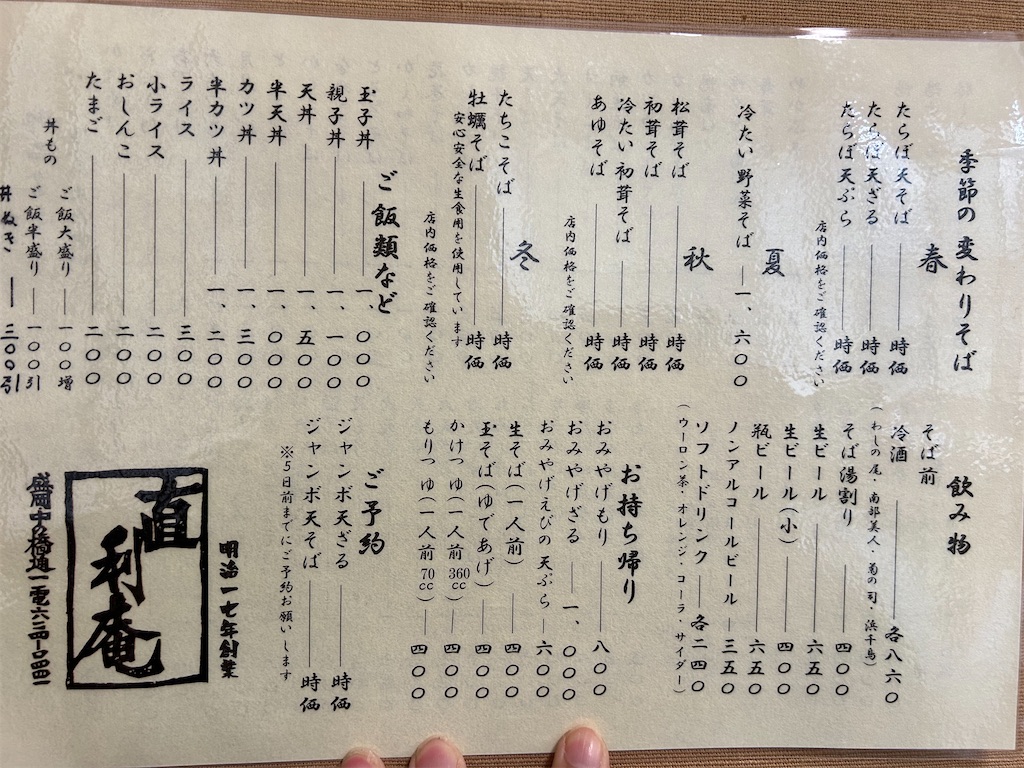 季節の変わりそば
春
たらぼ天そば 時価
たらぼ天ざる 時価
たらぼ天ぷら 時価
店内価格をご確認ください
夏
冷たい野菜そば 一、六〇〇
秋
松茸そば 時価
初茸そば 時価
冷たい初茸そば 時価
あゆそば 時価
店内価格をご確認ください
冬
たちこそば 時価
牡蠣そば 時価
安心安全な生食用を使用しています
店内価格をご確認ください
ご飯類など
玉子丼 一、〇〇〇
親子丼 一、一〇〇
天丼 一、五〇〇
半天丼 一、〇〇〇
カツ丼 一、三〇〇
半カツ丼 一、二〇〇
ライス 三〇〇
小ライス 二〇〇
おしんこ 二〇〇
たまご 二〇〇
丼もの
ご飯大盛り 一〇〇増
ご飯半盛り 一〇〇引
丼ぬき 二〇〇引
飲み物
そば前
冷酒 各八六〇
(わしの尾・南部美人・菊の司・浜千鳥)
そば湯割り 四〇〇
生ビール 六五〇
生ビール(小) 四〇〇
瓶ビール 六五〇
ノンアルコールビール 三五〇
ソフトドリンク 各二四〇
(ウーロン茶・オレンジ・コーラ・サイダー)
お持ち帰り
おみやげもり 八〇〇
おみやげざる 一、〇〇〇
おみやげえびの天ぷら 六〇〇
生そば(一人前) 四〇〇
玉そば(ゆであげ) 四〇〇
かけつゆ(一人前360cc) 四〇〇
もりつゆ(一人前70cc) 四〇〇
ご予約
ジャンボ天ざる 時価
ジャンボ天そば 時価
※5日前までにご予約お願いします
明治一七年創業
直利庵
盛岡中の橋通一電六二四-〇四四一